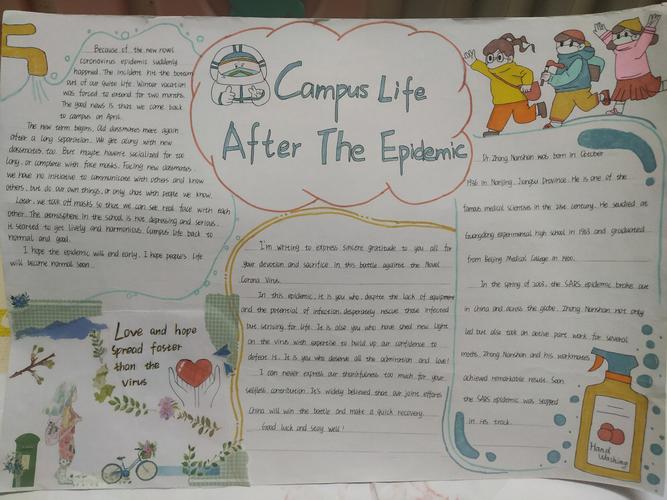 Campus Life
After The Epidemic
Because of the new
coronavirus epidemic suddenly
happened. The incident his the bottom
out of our quite life. Winter vacation
was forced to extend for two months.
The good news is that we came back
to campus on April.
The new term begins. Old classmates meet again
after a long separation. We get along with new
classmates too. But maybe haven't socialized for too
long, or complete with face masks. Facing new classmates
we have no initiative to communicate with others and know
others, but do our own things, or only chat with people we know.
Later, we took off masks so that we can see real face with each
other. The atmosphere in the school is not depressing and serious.
It started to get lively and harmonious. Campus life back to
normal and good.
I hope the epidemic will end early. I hope people's life
will become normal soon.
Love and hope
spread faster
than the
virus
I'm writing to express sincere gratitude to you all for
your devotion and sacrifice in this battle against the Novel
Corona Virus.
In this epidemic, it is you who, despite the lack of equipment
and the potential of infection desperately rescue those infected
but striving for life. It is also you who have shed new light
on the virus with expertise to build up our confidence to
defeat it. It is you who deserve all the admiration and love!
I can never express our thankfulness too much for your
selfless contribution. It's widely believed that our joint efforts
China will win the battle and make a quick recovery.
Good luck and stay well!
Dr Zhong Nanshan was born in October
1936 in Nanjing, Jiangsu Province. He is one of the
famous medical scientists in the 21st century. He studied at
Guangdong experimental high school in 1953 and graduated
from Beijing Medical College in 1960.
In the spring of 2003, the SARS epidemic broke out
in China and across the globe. Zhong Nanshan not only
led but also took an active part work for several
months. Zhong Nanshan and his workmates
achieved remarkable results. Soon
the SARS epidemic was stopped
in its track.
Hand
Washing